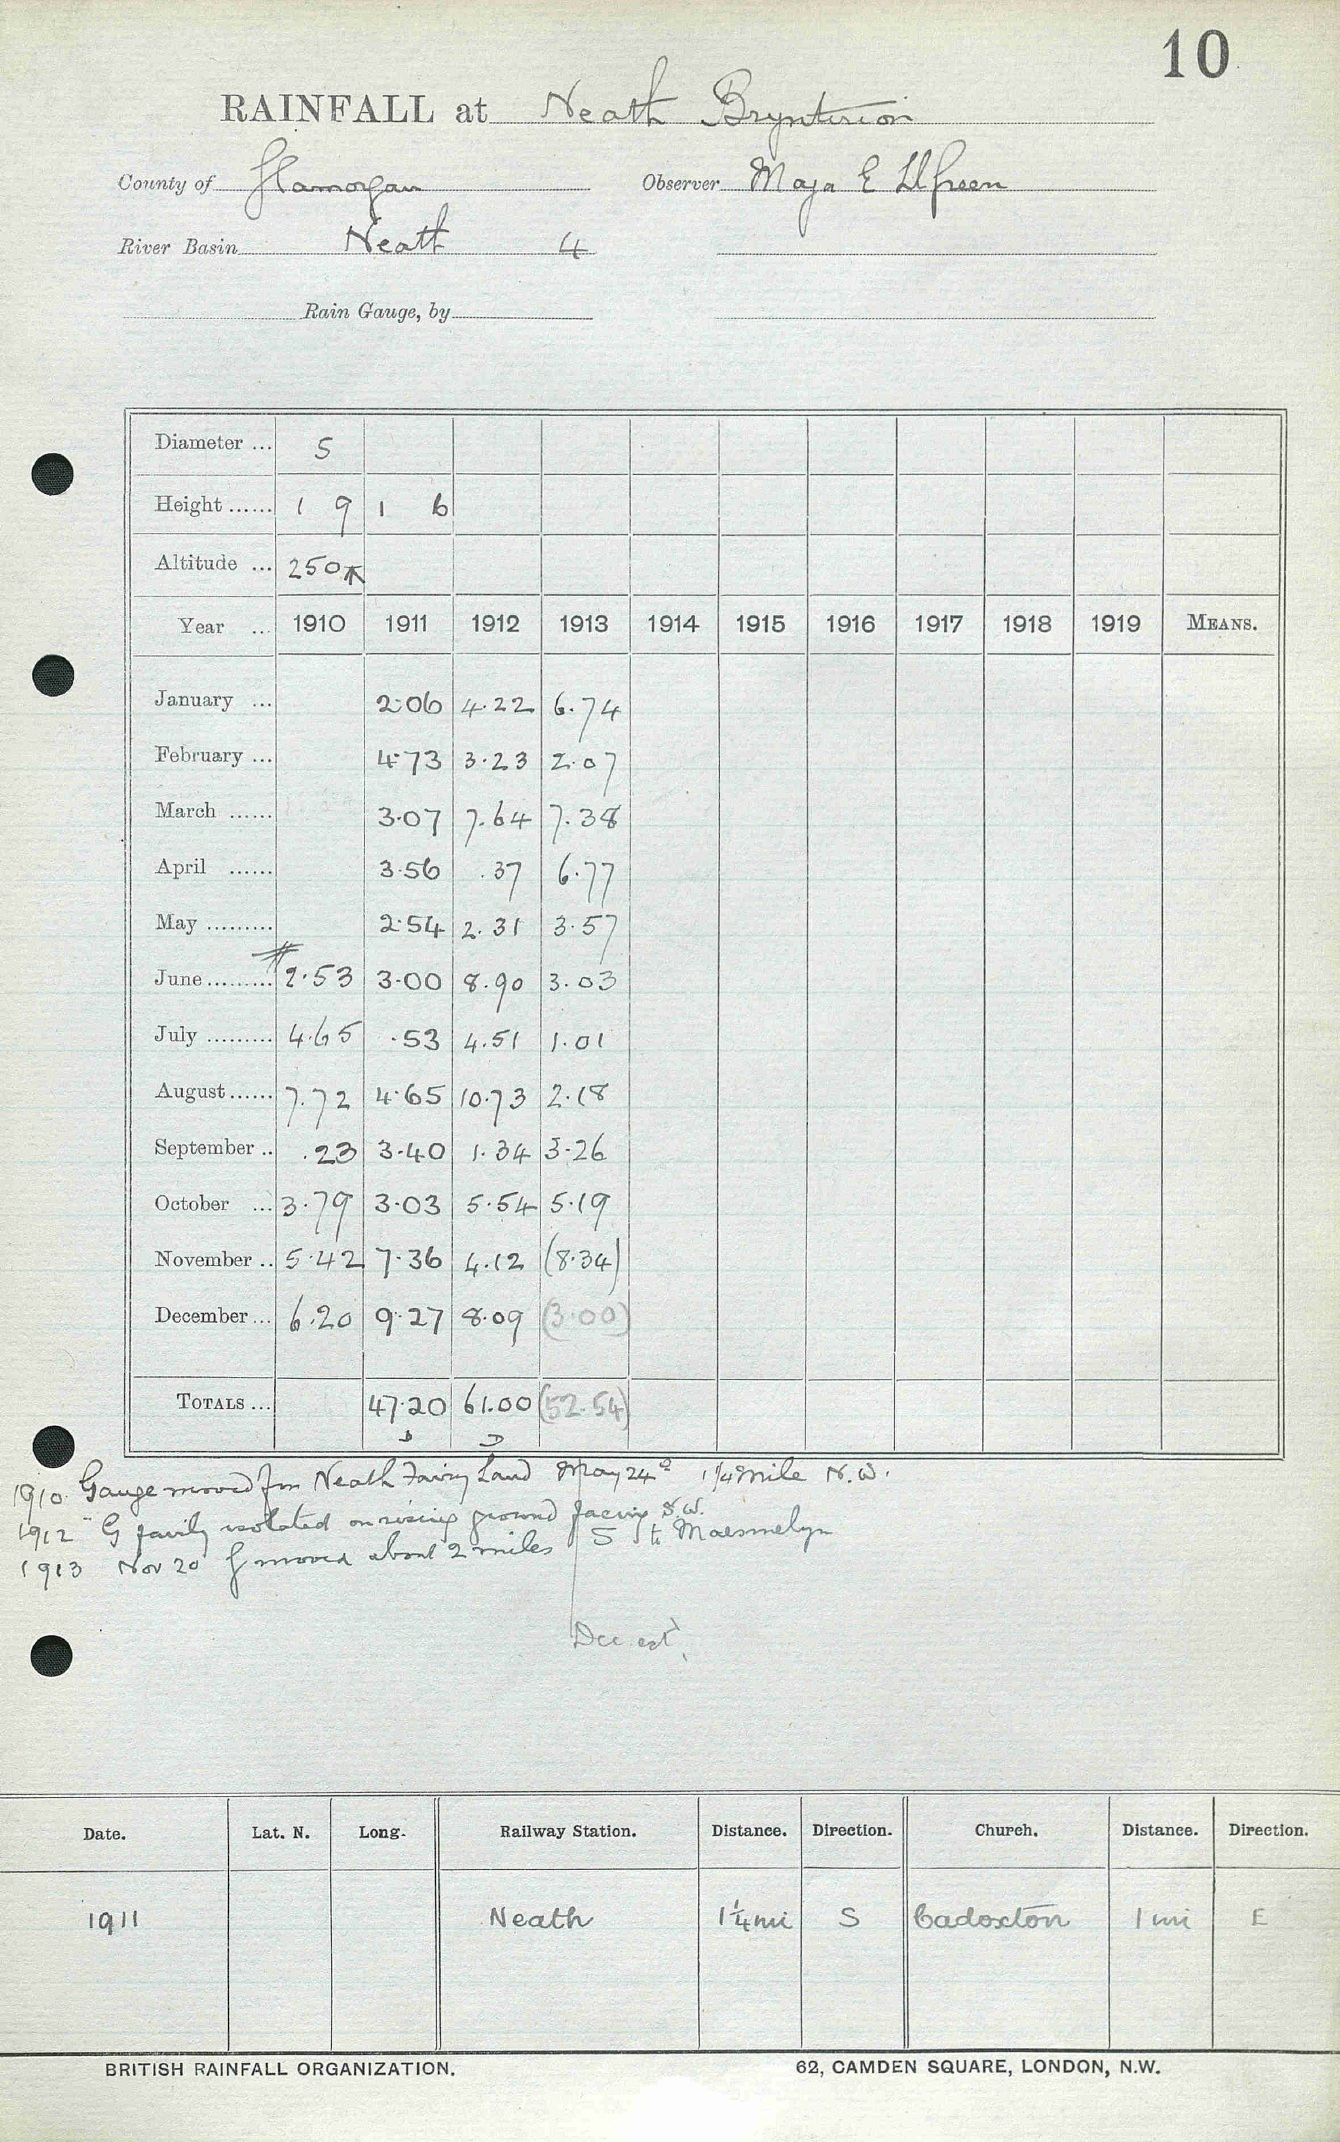 10
RAINFALL at Neath Brynterion
County of Glamorgan Observer Maja E Ll Green
River Basin Neath 4
Rain Gauge, by
Diameter ... 5
Height ...... 1 9 1 6
Altitude ... 250
Year ... 1910 1911 1912 1913 1914 1915 1916 1917 1918 1919 MEANS.
January ... 2.06 4.22 6.74
February ... 4.73 3.23 2.07
March ...... 3.07 7.64 7.38
April ...... 3.56 .37 6.77
May ......... 2.54 2.31 3.57
June ......... 2.53 3.00 8.90 3.03
July ......... 4.65 .53 4.51 1.01
August ...... 7.72 4.65 10.73 2.18
September .. .23 3.40 1.34 3.26
October ... 3.79 3.03 5.54 5.19
November .. 5.42 7.36 4.12 (8.34)
December ... 6.20 9.27 8.09 (3.00)
TOTALS ... 47.20 61.00 (52.54)
1910 Gauge moved fm Neath Fairy Land May 24th 1 1/4 mile N.W.
1912 G fairly isolated on rising ground facing S.W.
1913 Nov 20 G moved about 2 miles S to Maesmelyn
Dec est
Date. Lat. N. Long. Railway Station. Distance. Direction. Church. Distance. Direction.
1911 Neath 1 1/4 mi S Cadoxton 1 mi E
BRITISH RAINFALL ORGANIZATION. 62, CAMDEN SQUARE, LONDON, N.W.